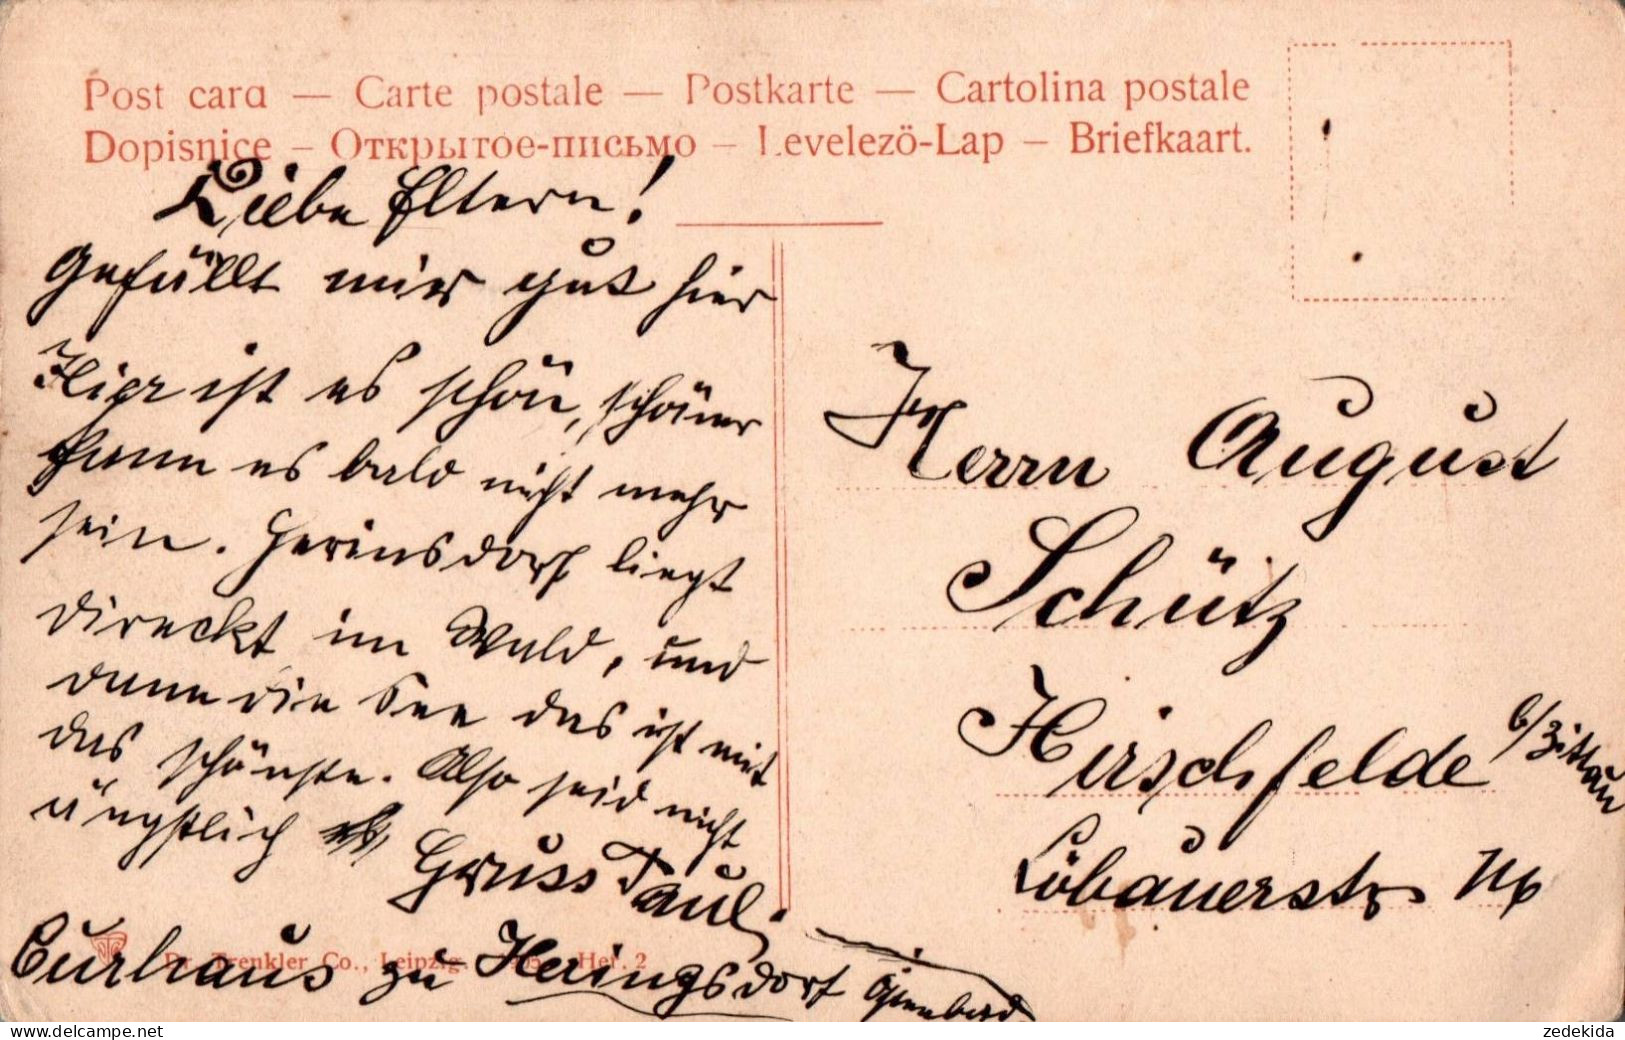 Post card — Carte postale — Postkarte — Cartolina postale
Dopisnice – Открытое-письмо – Levelezö-Lap – Briefkaart.
Liebe Eltern!
Gefällt mir gut hier
Hier ist es schön, schöner
kann es bald nicht mehr
sein. Herinsdorf liegt
direckt im Wald, und
dann die See das ist mit
das schönste. Also seid nicht
ängstlich
Gruss Paul.
Curhaus zu Heringsdorf
Herrn August
Schütz
Hirschfelde b/Zittau
Löbauerstr
Dr. Trenkler Co., Leipzig.
zedekida